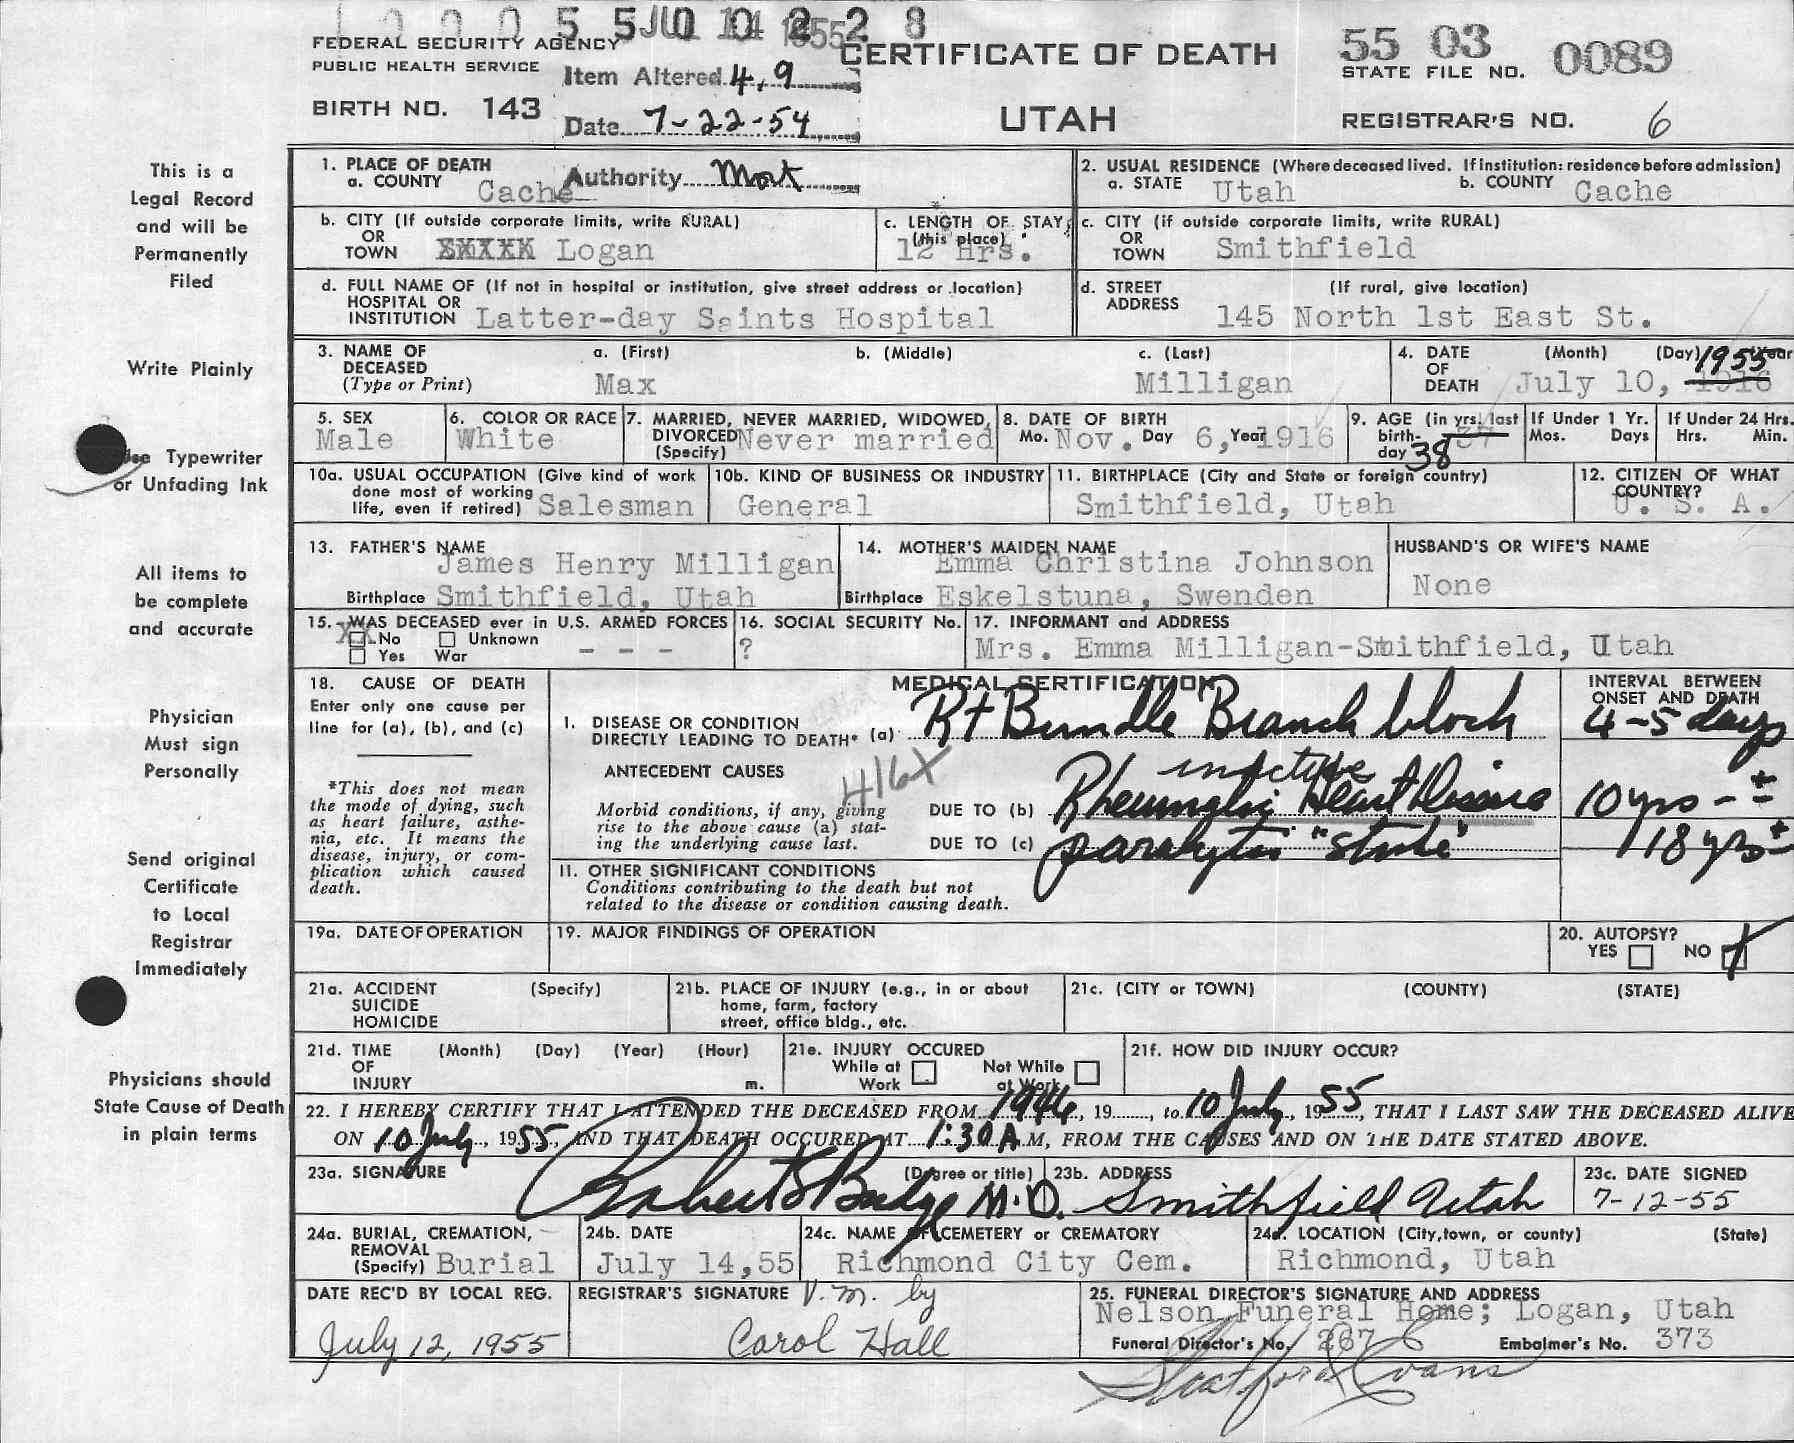 FEDERAL SECURITY AGENCY
PUBLIC HEALTH SERVICE
BIRTH NO. 143
Item Altered 4,9
Date 7-22-54
Authority Mort
CERTIFICATE OF DEATH
UTAH
55 03 0089
STATE FILE NO.
REGISTRAR'S NO. 6
This is a
Legal Record
and will be
Permanently
Filed
Write Plainly
Use Typewriter
or Unfading Ink
All items to
be complete
and accurate
Physician
Must sign
Personally
Send original
Certificate
to Local
Registrar
Immediately
Physicians should
State Cause of Death
in plain terms
1. PLACE OF DEATH
a. COUNTY Cache
2. USUAL RESIDENCE (Where deceased lived. If institution: residence before admission)
a. STATE Utah b. COUNTY Cache
b. CITY (If outside corporate limits, write RURAL)
OR
TOWN Logan
c. LENGTH OF STAY
(this place)
12 Hrs.
c. CITY (if outside corporate limits, write RURAL)
OR
TOWN Smithfield
d. FULL NAME OF (If not in hospital or institution, give street address or location)
HOSPITAL OR
INSTITUTION Latter-day Saints Hospital
d. STREET (If rural, give location)
ADDRESS 145 North 1st East St.
3. NAME OF DECEASED (Type or Print)
a. (First) b. (Middle) c. (Last)
Max Milligan
4. DATE OF DEATH (Month) (Day) (Year)
July 10, 1916 1955
5. SEX
Male
6. COLOR OR RACE
White
7. MARRIED, NEVER MARRIED, WIDOWED,
DIVORCED (Specify) Never married
8. DATE OF BIRTH
Mo. Nov. Day 6, Year 1916
9. AGE (in yrs. last
birth-
day 38 37
If Under 1 Yr.
Mos. Days
If Under 24 Hrs.
Hrs. Min.
10a. USUAL OCCUPATION (Give kind of work
done most of working
life, even if retired) Salesman
10b. KIND OF BUSINESS OR INDUSTRY
General
11. BIRTHPLACE (City and State or foreign country)
Smithfield, Utah
12. CITIZEN OF WHAT
COUNTRY?
U. S. A.
13. FATHER'S NAME
James Henry Milligan
Birthplace Smithfield, Utah
14. MOTHER'S MAIDEN NAME
Emma Christina Johnson
Birthplace Eskelstuna, Swenden
HUSBAND'S OR WIFE'S NAME
None
15. WAS DECEASED ever in U.S. ARMED FORCES
XX No Unknown
Yes War - - -
16. SOCIAL SECURITY No.
?
17. INFORMANT and ADDRESS
Mrs. Emma Milligan-Smithfield, Utah
18. CAUSE OF DEATH
Enter only one cause per
line for (a), (b), and (c)
*This does not mean
the mode of dying, such
as heart failure, asthe-
nia, etc. It means the
disease, injury, or com-
plication which caused
death.
MEDICAL CERTIFICATION
INTERVAL BETWEEN
ONSET AND DEATH
I. DISEASE OR CONDITION
DIRECTLY LEADING TO DEATH* (a) Rt Bundle Branch block 4-5 days
ANTECEDENT CAUSES 416X
Morbid conditions, if any, giving
rise to the above cause (a) stat-
ing the underlying cause last.
inactive
DUE TO (b) Rheumatic Heart Disease 10 yrs - ±
DUE TO (c) paralytic "stroke" 18 yrs ±
II. OTHER SIGNIFICANT CONDITIONS
Conditions contributing to the death but not
related to the disease or condition causing death.
19a. DATE OF OPERATION
19. MAJOR FINDINGS OF OPERATION
20. AUTOPSY?
YES NO X
21a. ACCIDENT (Specify)
SUICIDE
HOMICIDE
21b. PLACE OF INJURY (e.g., in or about
home, farm, factory
street, office bldg., etc.
21c. (CITY or TOWN) (COUNTY) (STATE)
21d. TIME (Month) (Day) (Year) (Hour)
OF
INJURY m.
21e. INJURY OCCURED
While at Work Not While at Work
21f. HOW DID INJURY OCCUR?
22. I HEREBY CERTIFY THAT I ATTENDED THE DECEASED FROM 1946, 19......, to 10 July, 1955, THAT I LAST SAW THE DECEASED ALIVE
ON 10 July, 1955, AND THAT DEATH OCCURED AT 1:30 A M, FROM THE CAUSES AND ON THE DATE STATED ABOVE.
23a. SIGNATURE (Degree or title)
Robert S Budge M.D.
23b. ADDRESS
Smithfield Utah
23c. DATE SIGNED
7-12-55
24a. BURIAL, CREMATION,
REMOVAL
(Specify) Burial
24b. DATE
July 14,55
24c. NAME OF CEMETERY or CREMATORY
Richmond City Cem.
24d. LOCATION (City, town, or county) (State)
Richmond, Utah
DATE REC'D BY LOCAL REG.
July 12, 1955
REGISTRAR'S SIGNATURE V.M. by
Carol Hall
25. FUNERAL DIRECTOR'S SIGNATURE AND ADDRESS
Nelson Funeral Home; Logan, Utah
Funeral Director's No. 267 Embalmer's No. 373
Evans